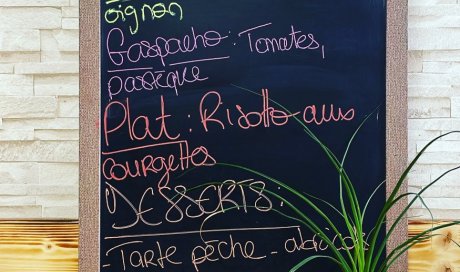 oignon
Gaspacho : Tomates,
pastèque
Plat : Risotto aux
courgettes
DESSERTS :
- Tarte pêche - abricot